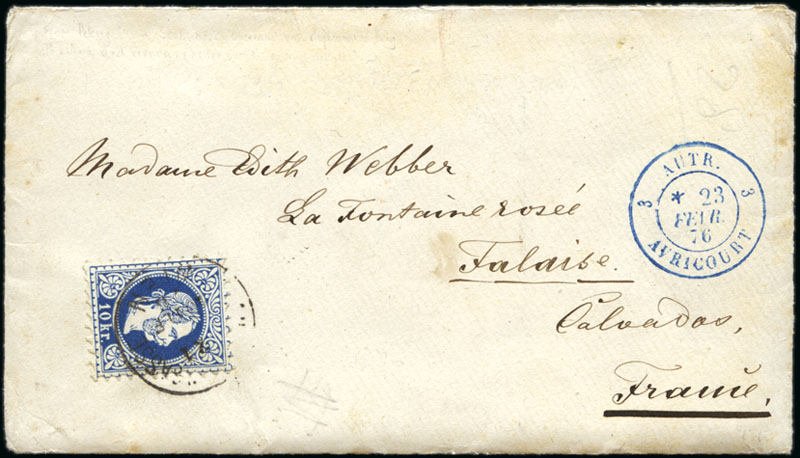 Madame Edith Webber
La Fontaine rosée
Falaise.
Calvados,
France.
AUTR.
3 3
* 23
FEVR.
76
AVRICOURT
10 kr.